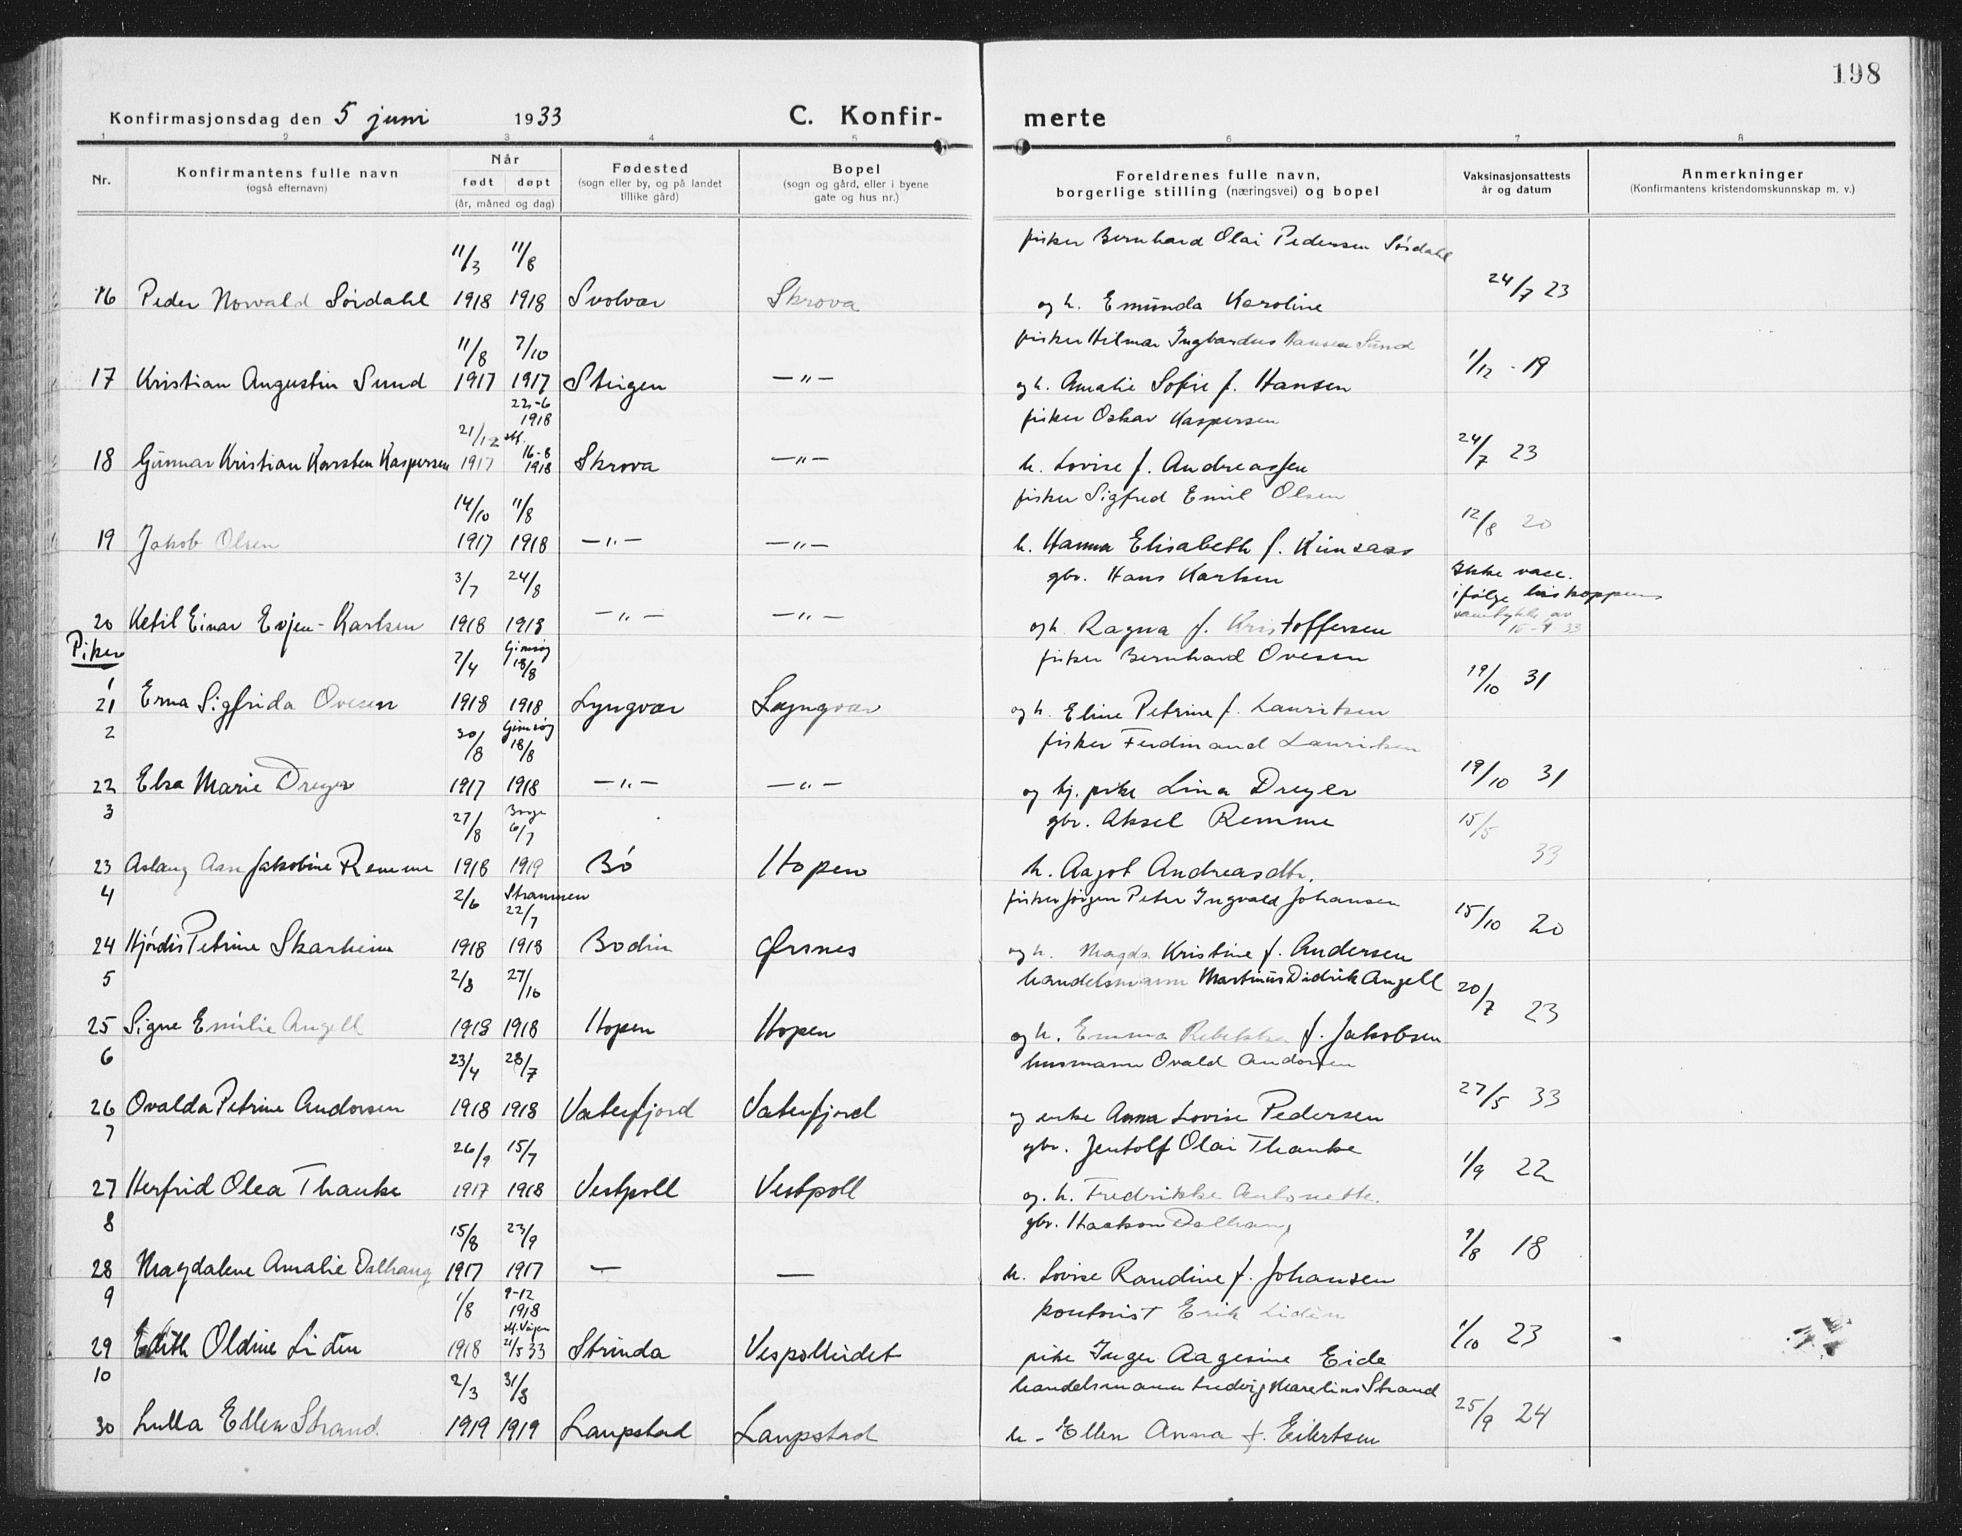 198
Konfirmasjonsdag den 5 juni 1933 C. Konfir- merte
1 2 3 4 5 6 7 8
Nr. Konfirmantens fulle navn (også efternavn) Når født døpt (år, måned og dag) Fødested (sogn eller by, og på landet tillike gård) Bopel (sogn og gård, eller i byene gate og hus nr.) Foreldrenes fulle navn, borgerlige stilling (næringsvei) og bopel Vaksinasjonsattests år og datum Anmerkninger (Konfirmantens kristendomskunnskap m. v.)
11/3 11/8 fisker Bernhard Olai Pedersen Sørdahl
16 Peder Norvald Sørdahl 1918 1918 Svolvær Skrova og h. Emunda Karoline 24/7 23
11/8 7/10 fisker Hilmar Ingvardus Hansen Sund
17 Kristian Angustin Sund 1917 1917 Steigen —"— og h. Amalie Sofie f. Hansen 1/12 - 19
21/12 22-6 1918 fisker Oskar Kaspersen
18 Gunnar Kristian Karsten Kaspersen 1917 16-8 1918 Skrova —"— h. Lovise f. Andreassen 24/7 23
14/10 11/8 fisker Sigfred Emil Olsen
19 Jakob Olsen 1917 1918 —"— —"— h. Hanna Elisabeth f. 12/8 20
3/7 24/8 gbr. Hans Karlsen Ikke vacc.
20 Ketil Einar Evjen-Karlsen 1918 1918 —"— —"— og h. Ragna f. Kristoffersen ifølge 15-9 33
Piker
7/4 Gimsøy 18/8 fisker Bernhard Ovesen
1
21 Erna Sigfrida Ovesen 1918 1918 Lyngvær Lyngvær og h. Eline Petrine f. Lauritsen 19/10 31
2 30/8 Gimsøy 18/8 fisker Ferdinand Lauritsen
22 Elsa Marie Dreyer 1917 1918 —"— —"— og hj. pike Lina Dreyer 19/10 31
3 27/8 Borge 6/7 gbr. Aksel Remme
23 Aslaug Jakobine Remme 1918 1919 Bø Hopen h. Aagot Andreasdtr. 15/5 33
4 2/6 Strammen 22/7 fisker Jørgen Peter Ingvald Johansen
24 Hjørdis Petrine Skarheim 1918 1918 Bodin Ørsnes og h. Magda Kristine f. Andersen 15/10 20
5 2/8 27/10 handelsmann Martinus Didrik Angell
25 Signe Emilie Angell 1918 1918 Hopen Hopen og h. Emma Rebekka f. Jakobsen 20/7 23
6 23/4 28/7 husmann Ovald Andorsen
26 Ovalda Petrine Andorsen 1918 1918 Vaterfjord Vaterfjord og enke Anna Lovise Pedersen 27/5 33
7 26/9 15/7 gbr. Jentolf Olai Thanke
27 Herfrid Olea Thanke 1917 1918 Vestpoll Vestpoll og h. Fredrikke Antonette. 1/9 22
8 15/8 23/9 gbr. Haakon Dalhaug
28 Magdalene Amalie Dalhaug 1917 1917 — — h. Lovise Randine f. Johansen 9/8 18
9 1/8 9-12 1918 kontorist Erik Lidén
29 Edith Oldine Lidén 1918 21/5 33 Strinda Vespolleidet pike Inger Aagesine Eide 1/10 23
10 2/3 31/8 handelsmann Ludvig Marelius Strand
30 Lulla Ellen Strand 1919 1919 Laupstad Laupstad h - Ellen Anna f. Eilertsen 25/9 24